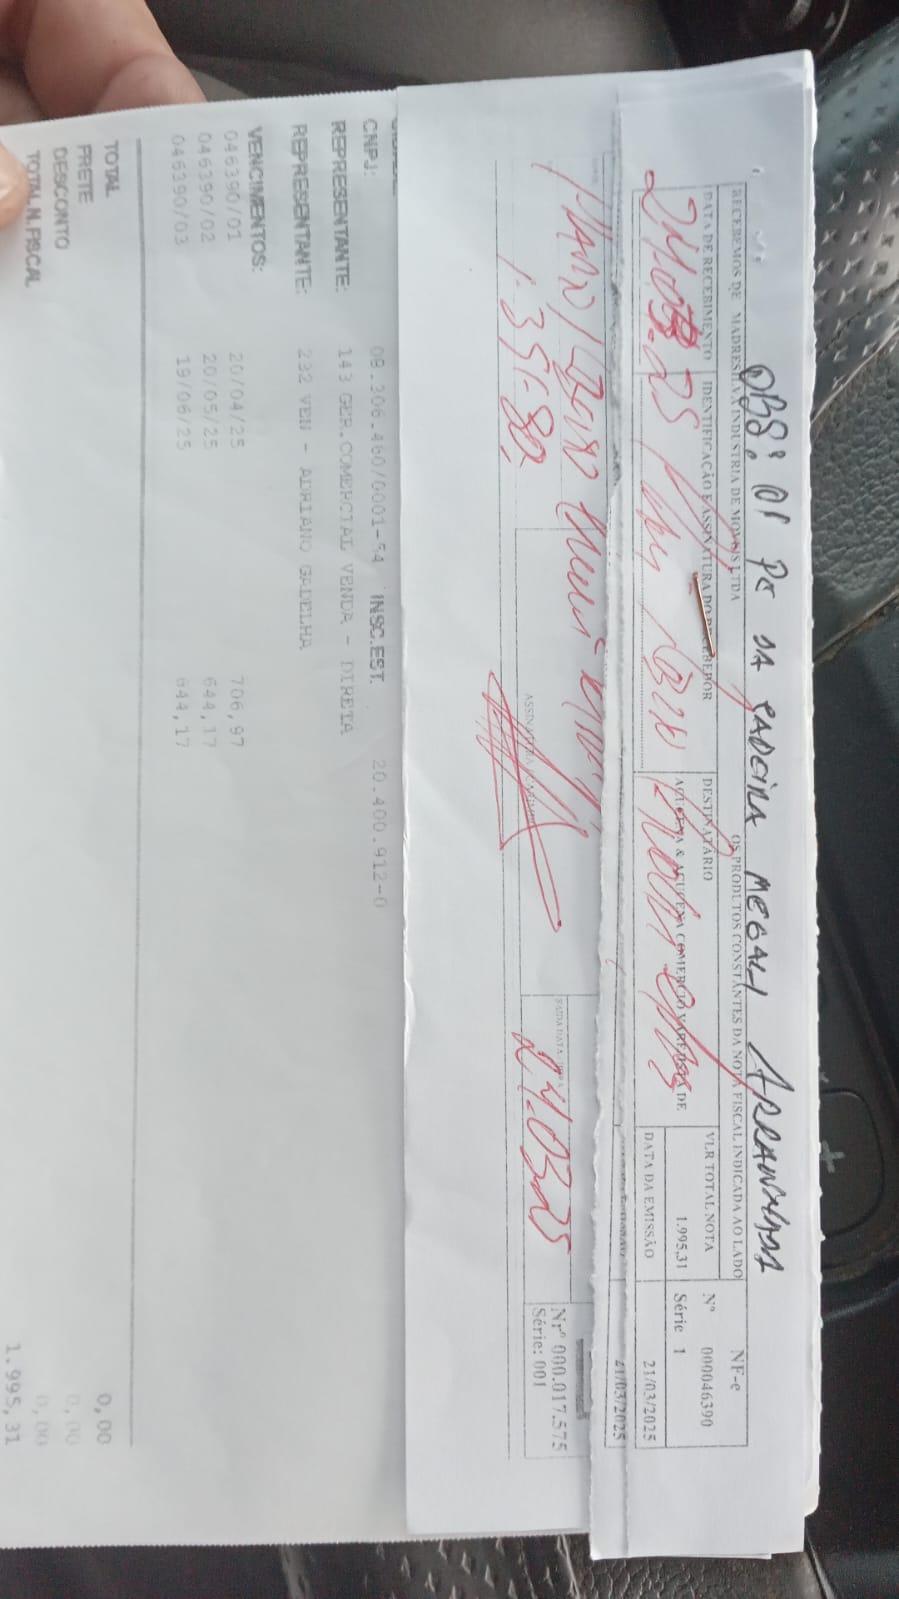 OBS: 01 PC DA CADEIRA MEGALI ARRANHADA
RECEBEMOS DE MADRESILVA INDUSTRIA DE MOVEIS LTDA OS PRODUTOS CONSTANTES DA NOTA FISCAL INDICADA AO LADO
NF-e
DATA DE RECEBIMENTO
IDENTIFICAÇÃO E ASSINATURA DO RECEBEDOR
DESTINATÁRIO
VLR TOTAL NOTA
Nº 000046390
AÇUCENA & AÇUCENA COMERCIO VAREJISTA DE
1.995,31
Série 1
DATA DA EMISSÃO
21/03/2025
21/03/2025
ASSINATURA
SAIDA DATA
24.03.25
Nrº 000.017.575
Série: 001
CNPJ: 08.206.460/0001-54 INSC.EST. 20.400.912-0
REPRESENTANTE: 143 GER.COMERCIAL VENDA - DIRETA
REPRESENTANTE: 232 VEN - ADRIANO GADELHA
VENCIMENTOS:
046390/01 20/04/25 706,97
046390/02 20/05/25 644,17
046390/03 19/06/25 644,17
TOTAL 0,00
FRETE 0,00
DESCONTO 0,00
TOTAL N.FISCAL 1.995,31